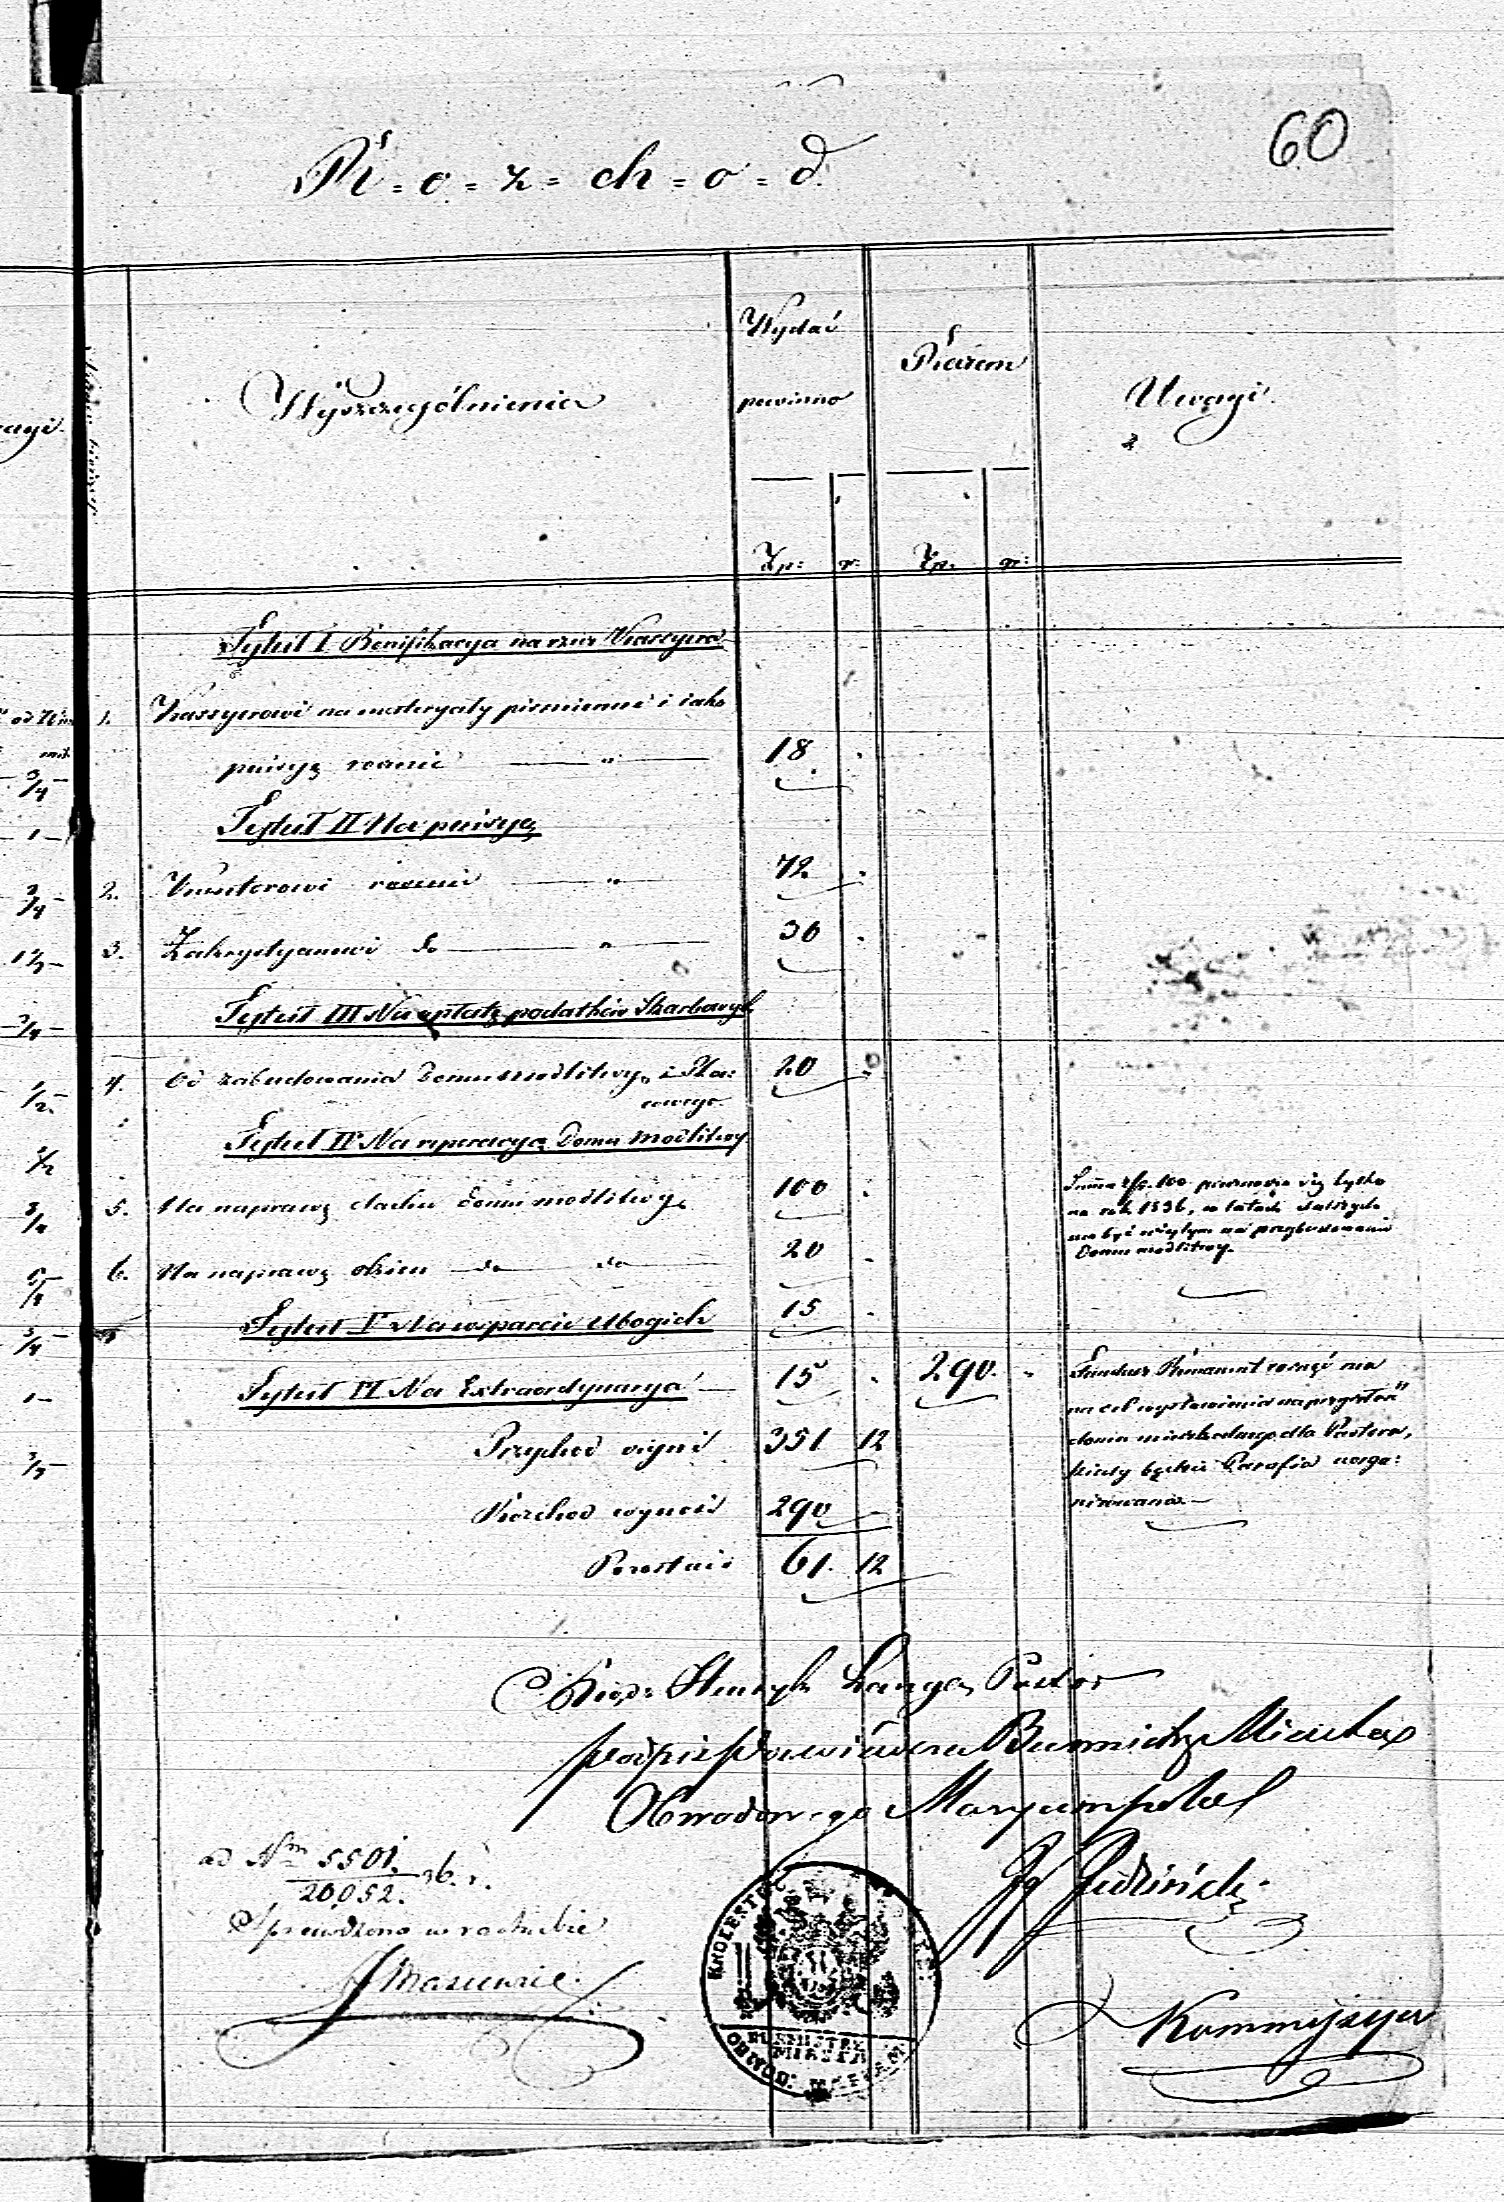 60
R = o = z = ch = o = d.
Wyszczególnienia
Wydać
powinno
Razem
Uwagi.
Zp: gr: Zp. gr:
Tytuł I Bonifikacya na rzecz Kassyera
1. Kassyerowi na materyały piśmienne i jako
pensyą rocznie " 18 .
Tytuł II Na pensye
2. Kantorowi rocznie " 72 .
3. Zakrystyanowi do " 50 .
Tytuł III Na opłatę podatków Skarbowych
4. Od zabudowania Domu modlitwy, i Pla:
cowego 20 .
Tytuł IV Na reperacyą Domu modlitwy
5. Na naprawę dachu Domu modlitwy 100 .
Summa Zp. 100 przeznacza się tylko
na rok 1836, w latach dalszych
ma być użytym na przybudowanie
Domu modlitwy.
6. Na naprawę okien do do 20 .
Tytuł V Na wsparcie Ubogich 15 .
Tytuł VI Na Extraordynarya 15 . 290. .
Fundusz Remanent
na cel wystawienia na przyszłość
domu mieszkalnego dla Pastora,
kiedy będzie Parafia uorga:
nizowana.
Przychod czyni 351 12
Rozchod wynosi 290
Pozostaie 61. 12
Xiądz Henryk Lange, Pastor
Burmistrz Miasta
Obwodowego Maryampola
ad Nm 5501. 36. r.
20052.
Sprawdzono w rachubie
KROLESTWO
BURMISTRZ
MIASTA
OBWOD.